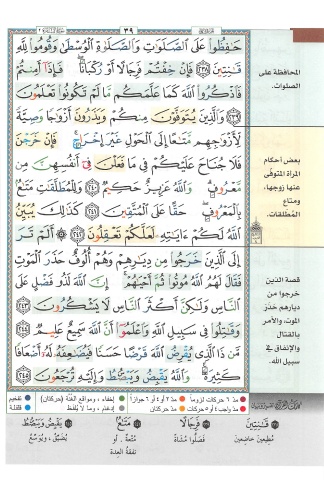 ٣٩
حَٰفِظُوا۟ عَلَى ٱلصَّلَوَٰتِ وَٱلصَّلَوٰةِ ٱلْوُسْطَىٰ وَقُومُوا۟ لِلَّهِ
قَٰنِتِينَ ٢٣٨ فَإِنْ خِفْتُمْ فَرِجَالًا أَوْ رُكْبَانًا ۖ فَإِذَآ أَمِنتُمْ
فَٱذْكُرُوا۟ ٱللَّهَ كَمَا عَلَّمَكُم مَّا لَمْ تَكُونُوا۟ تَعْلَمُونَ
٢٣٩ وَٱلَّذِينَ يُتَوَفَّوْنَ مِنكُمْ وَيَذَرُونَ أَزْوَٰجًا وَصِيَّةً
لِّأَزْوَٰجِهِم مَّتَٰعًا إِلَى ٱلْحَوْلِ غَيْرَ إِخْرَاجٍ ۚ فَإِنْ خَرَجْنَ
فَلَا جُنَاحَ عَلَيْكُمْ فِى مَا فَعَلْنَ فِىٓ أَنفُسِهِنَّ مِن
مَّعْرُوفٍ ۗ وَٱللَّهُ عَزِيزٌ حَكِيمٌ ٢٤٠ وَلِلْمُطَلَّقَٰتِ مَتَٰعٌۢ
بِٱلْمَعْرُوفِ ۖ حَقًّا عَلَى ٱلْمُتَّقِينَ ٢٤١ كَذَٰلِكَ يُبَيِّنُ
ٱللَّهُ لَكُمْ ءَايَٰتِهِۦ لَعَلَّكُمْ تَعْقِلُونَ ٢٤٢ ۞ أَلَمْ تَرَ
إِلَى ٱلَّذِينَ خَرَجُوا۟ مِن دِيَٰرِهِمْ وَهُمْ أُلُوفٌ حَذَرَ ٱلْمَوْتِ
فَقَالَ لَهُمُ ٱللَّهُ مُوتُوا۟ ثُمَّ أَحْيَٰهُمْ ۚ إِنَّ ٱللَّهَ لَذُو فَضْلٍ عَلَى
ٱلنَّاسِ وَلَٰكِنَّ أَكْثَرَ ٱلنَّاسِ لَا يَشْكُرُونَ ٢٤٣
وَقَٰتِلُوا۟ فِى سَبِيلِ ٱللَّهِ وَٱعْلَمُوٓا۟ أَنَّ ٱللَّهَ سَمِيعٌ عَلِيمٌ ٢٤٤
مَّن ذَا ٱلَّذِى يُقْرِضُ ٱللَّهَ قَرْضًا حَسَنًا فَيُضَٰعِفَهُۥ لَهُۥٓ أَضْعَافًا
كَثِيرَةً ۚ وَٱللَّهُ يَقْبِضُ وَيَبْصُۜطُ وَإِلَيْهِ تُرْجَعُونَ ٢٤٥
المحافظة على
الصلوات.
بعض أحكام
المرأة المتوفّى
عنها زوجها،
ومتاع
المُطلقات.
قصة الذين
خرجوا من
ديارهم حذر
الموت، والأمر
بالقتال
والإنفاق في
سبيل الله.
مدّ ٦ حركات لزوماً مدّ ٢ أو ٤ أو ٦ جوازاً إخفاء، ومواقع الغُنَّة (حركتان) تفخيم
مدّ واجب ٤ أو ٥ حركات مدّ حركتان إدغام، وما لا يُلفَظ قلقلة
قَٰنِتِينَ
مطيعين خاضعين
فَرِجَالًا
فصلُّوا مُشاةً
مَتَٰعٌ
مُتعة، أو
نفقة العِدة
يَقْبِضُ وَيَبْصُۜطُ
يُضيِّق، ويُوسِّع